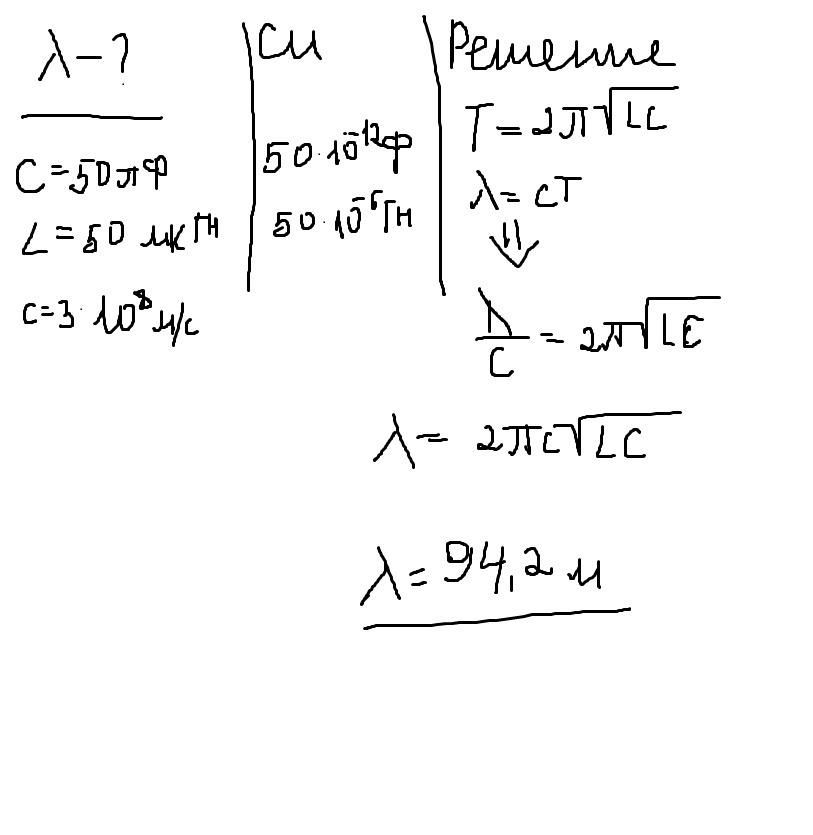 λ-?
C=50пФ
L=50 мкГн
c=3·10⁸м/с
СИ
50·10⁻¹²Ф
50·10⁻⁶Гн
Решение
T=2π√LC
λ=cT
⇓
λ/c=2π√LC
λ=2πc√LC
λ=94,2м